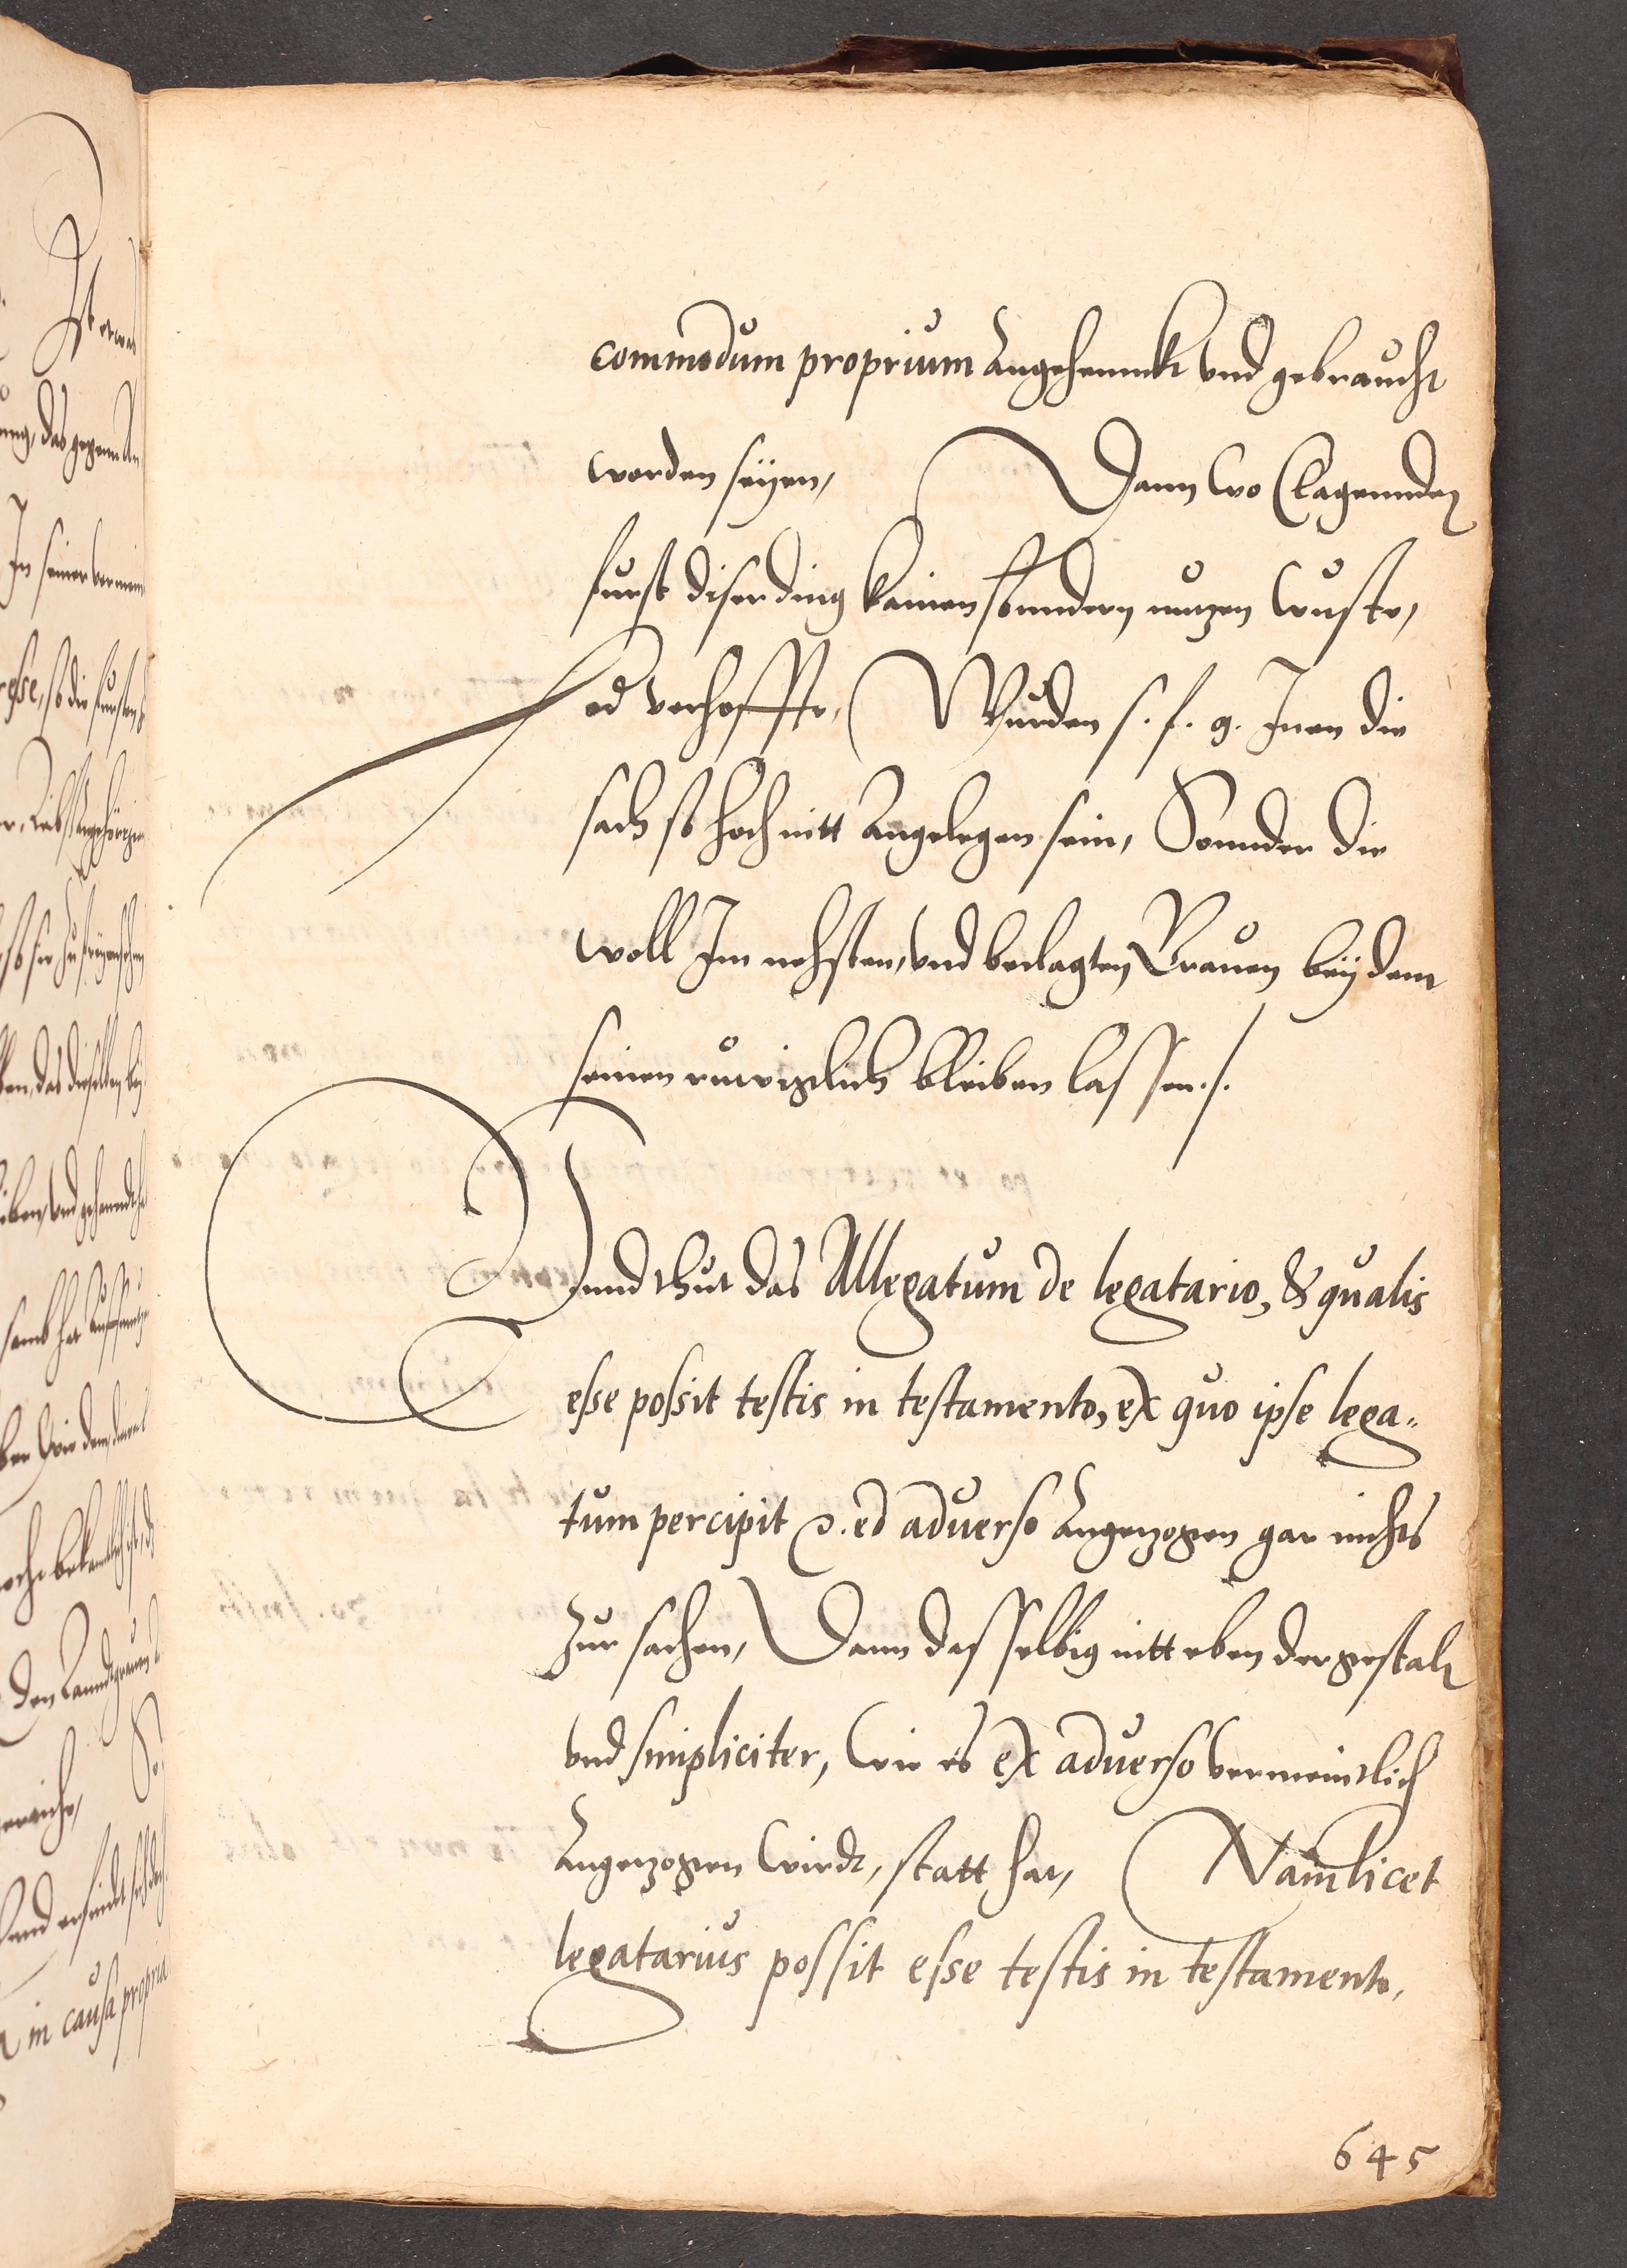 commodum proprium Angehennkt vnd gebraucht
worden seyen, Dann wo Clagennder
furst diser ding keinen sonndern nutzen wuste,
od verhoffte, Wurden s. f. g. Inen die
sach so hoch nitt Angelegen sein, Sonnder die
woll Im nehsten, vnd beclagten Grauen bey dem
seinen ruwigclich bleiben lassen ./.
Vnnd thut das Allegatum de legatario, & qualis
esse possit testis in testamento, ex quo ipse lega„
tum percipit ed aduerso Angezogen gar nichts
zur sachen, Dann dasselbig nitt eben dergestalt
vnd simpliciter, wie es ex aduerso vermeintlich
Angezogen wirdt, statt hat, Nam licet
legatarius possit esse testis in testamento,
645